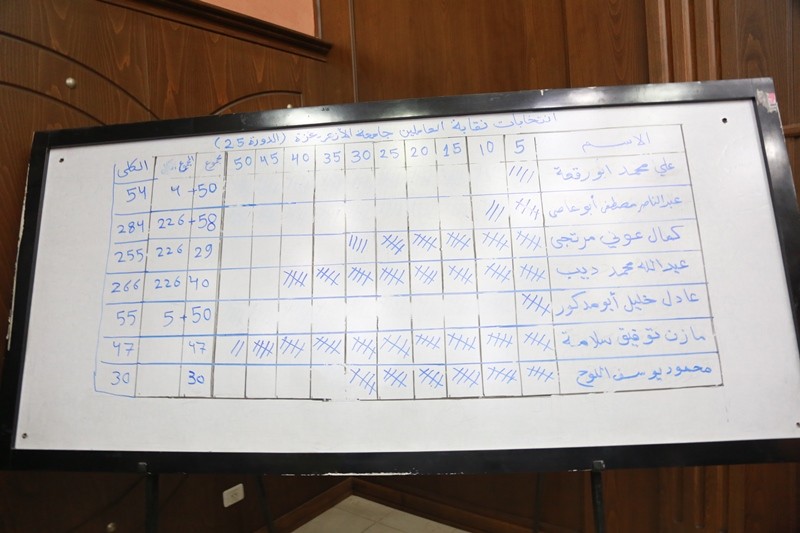 انتخابات نقابة العاملين جامعة الأزهر-غزة (الدورة 25)
الاسم 5 10 15 20 25 30 35 40 45 50 الكلي
علي محمد ابورقعة 50 + 4 54
عبدالناصر مصطفى أبوعاصي 58 + 226 284
كمال عوني مرتجى 29 226 255
عبدالله محمد ديب 40 226 266
عادل خليل أبومدكور 50 + 5 55
مازن توفيق سلامة 47 47
محمود يوسف اللوح 30 30